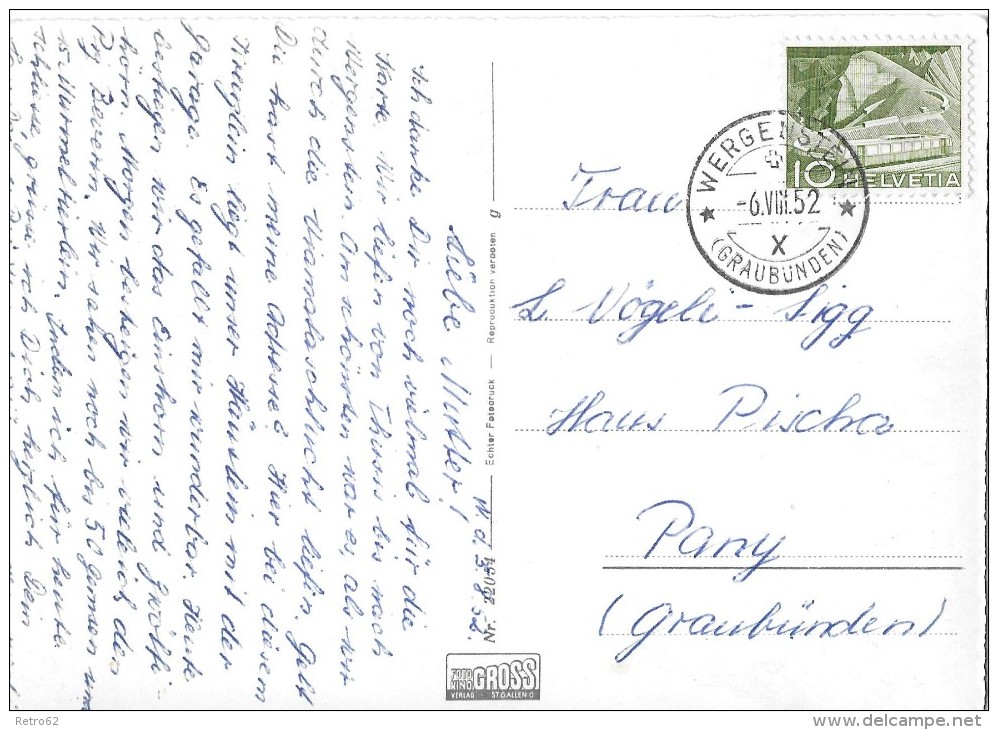 W. d. 5.8.52.
Liebe Mutter!
Ich danke Dir noch vielmal für die
Karte. Wir liefen von Thusis bis nach
Wergenstein. Am schönsten war es als wir
durch die Viamalaschlucht liefen. Gelt
Du hast meine Adresse? Hier bei diesem
liegt unser Häuslein mit der
Garage. Es gefällt mir wunderbar. Heute
bestiegen wir das Einhorn und Gwölfi
hörn. Morgen besteigen wir vieleich den
Piz Beverin. Wir sahen noch bis 50 Gemsen um
15 Murmeltierlein. Indem ich für heute
schliesse, grüsse ich Dich herzlich Dein
Echter Fotodruck — Reproduktion verboten g
Nr. 22054
FOTO KINO GROSS
VERLAG ST. GALLEN O
WERGENSTEIN
-6.VIII.52
X
(GRAUBÜNDEN)
10 HELVETIA
Frau
L. Vögeli-Sigg
Haus Pischa
Pany
(Graubünden)
Retro62
delcampe.net